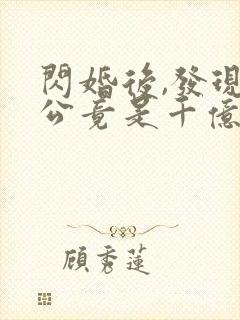 閃婚後,發現
公竟是千億
顧秀蓮